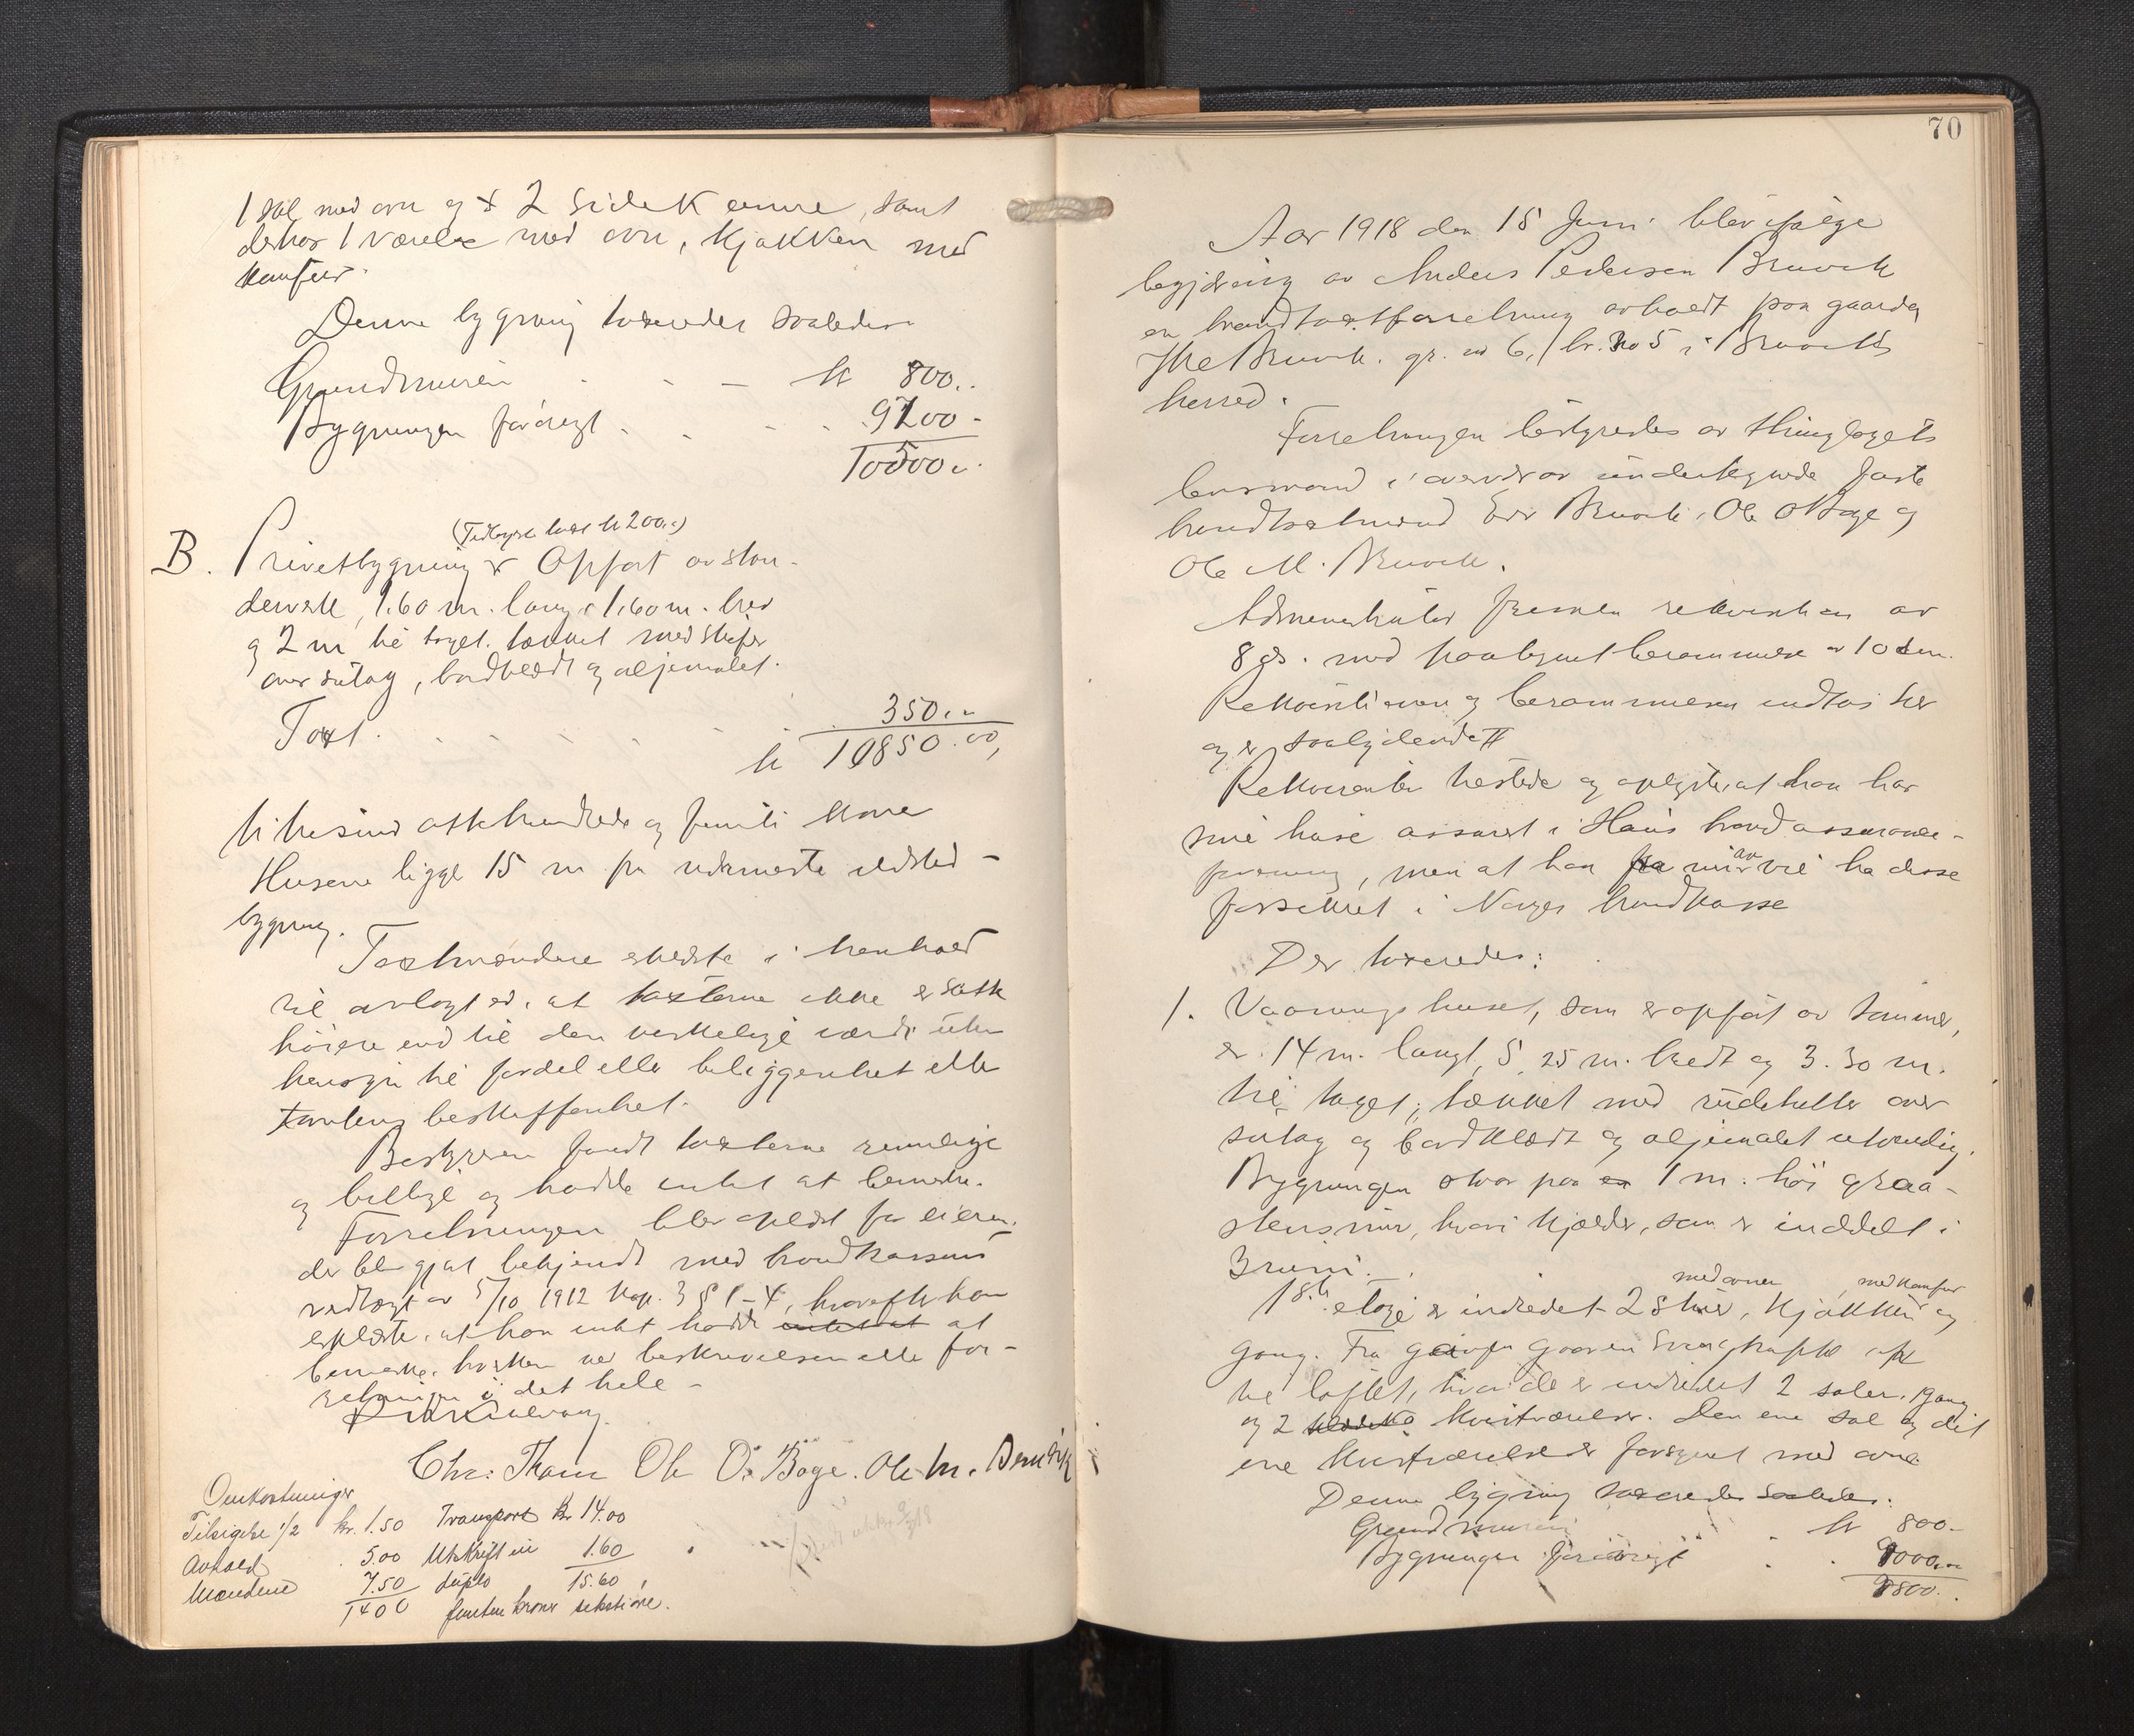 1 sal med ovn og 2 sidekamre, samt
derhos 1 værelse med ovn, kjøkken med
komfur.
Denne bygning taxeredes saaledes
Grundmuren kr 800..
Bygningen forøvrigt 9700 -
10500..
(Fradragsv. taxt kr 200..)
B. Privetbygning er Opført av stan-
derverk, 1.60 m. lang, 1.60 m. bred
og 2 m til taget. tækket med skifer
over sutag, bordklædt og oljemalet.
Taxt. 350..
kr 10850.00,
ti tusind ottehundrede og femti kroner
Husene ligge 15 m fra nærmeste ildsted-
bygning.
Taxtmændene erklærte i henhold
til avlagt ed, at taxterne ikke er satt
høiere end til den virkelige værdi uten
hensyn til fordel eller beliggenhet eller
tomtens beskaffenhet.
Bestyreren fandt taxterne rimelige
og billige og hadde intet at bemerke.
Forretningen blev oplæst for eieren,
der blev gjort bekjendt med brandkassens
vedtægt av 5/10 1912 Kap. 3 § 1-4, hvorefter han
erklærte, at han intet hadde at
bemerke, hverken ved beskrivelsen eller for-
retningen i det hele -
Chr. Thom Ole O. Bøge. Ole M. Bruvik
Omkostninger
Tilsigelse 1/2 kr. 1.50 Transport kr 14.00
Avhold 5.00 Utskrift in 1.60
Mændene 7.50 duplo 15.60,
14 00 femten kroner seksti øre.
70
Aar 1918 den 15 Juni blev ifølge
begjæring av Anders Pedersen Bruvik
en brandtaxtforretning avholdt paa gaarden
Ytre Bruvik. gr. no 6, br. no 5 i Bruviks
herred.
Forretningen bestyredes av thinglagets
lensmand i overvær av undertegnede faste
brandtaxtmænd Bruvik, Ole O Bøge og
Ole M. Bruvik.
Administrator fremla rekvisition av
8 ds. med paategnet berammelse av 10 dm.
Rekvisitionen og berammelsen indtas her
og er saalydende #
Rekvirenten tilstede og oplyste, at han har
sine huse assurert i Haus brandassurance-
forening, men at han nu vil ha disse
forsikret i Norges brandkasse
Der taxeredes:
1. Vaaningshuset, som er opført av tømmer,
er 14 m. langt, 5,25 m. bredt og 3.30 m.
til taget; tækket med rudeheller over
sutag og bordklædt og oljemalet utvendig.
Bygningen staar paa 1 m. høi graa-
stensmur, hvori kjælder, som er inddelt i
3 rum.
med ovner med komfur
1ste etage er indredet 2 stuer, kjøkken og
gang. Fra gangen gaar en svingtrappe op
til loftet, hvor der er indredet 2 saler, gang
og 2 kvistværelser. Den ene sal og det
ene kvistværelse er forsynet med ovne.
Denne bygning taxeredes saaledes:
Grundmuren kr 800.-
Bygningen forøvrigt 9000..
9800.